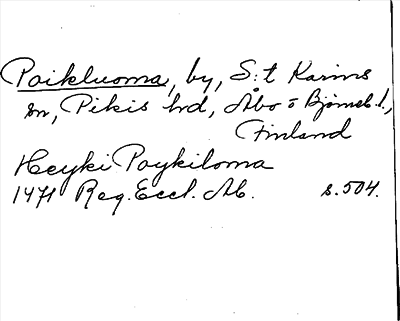 Poikluoma, by, S:t Karins
sn, Pikis hrd, Åbo o Björneb. l.,
Finland
Heyki Poykiloma
1471 Reg. Eccl. Ab. s. 504.